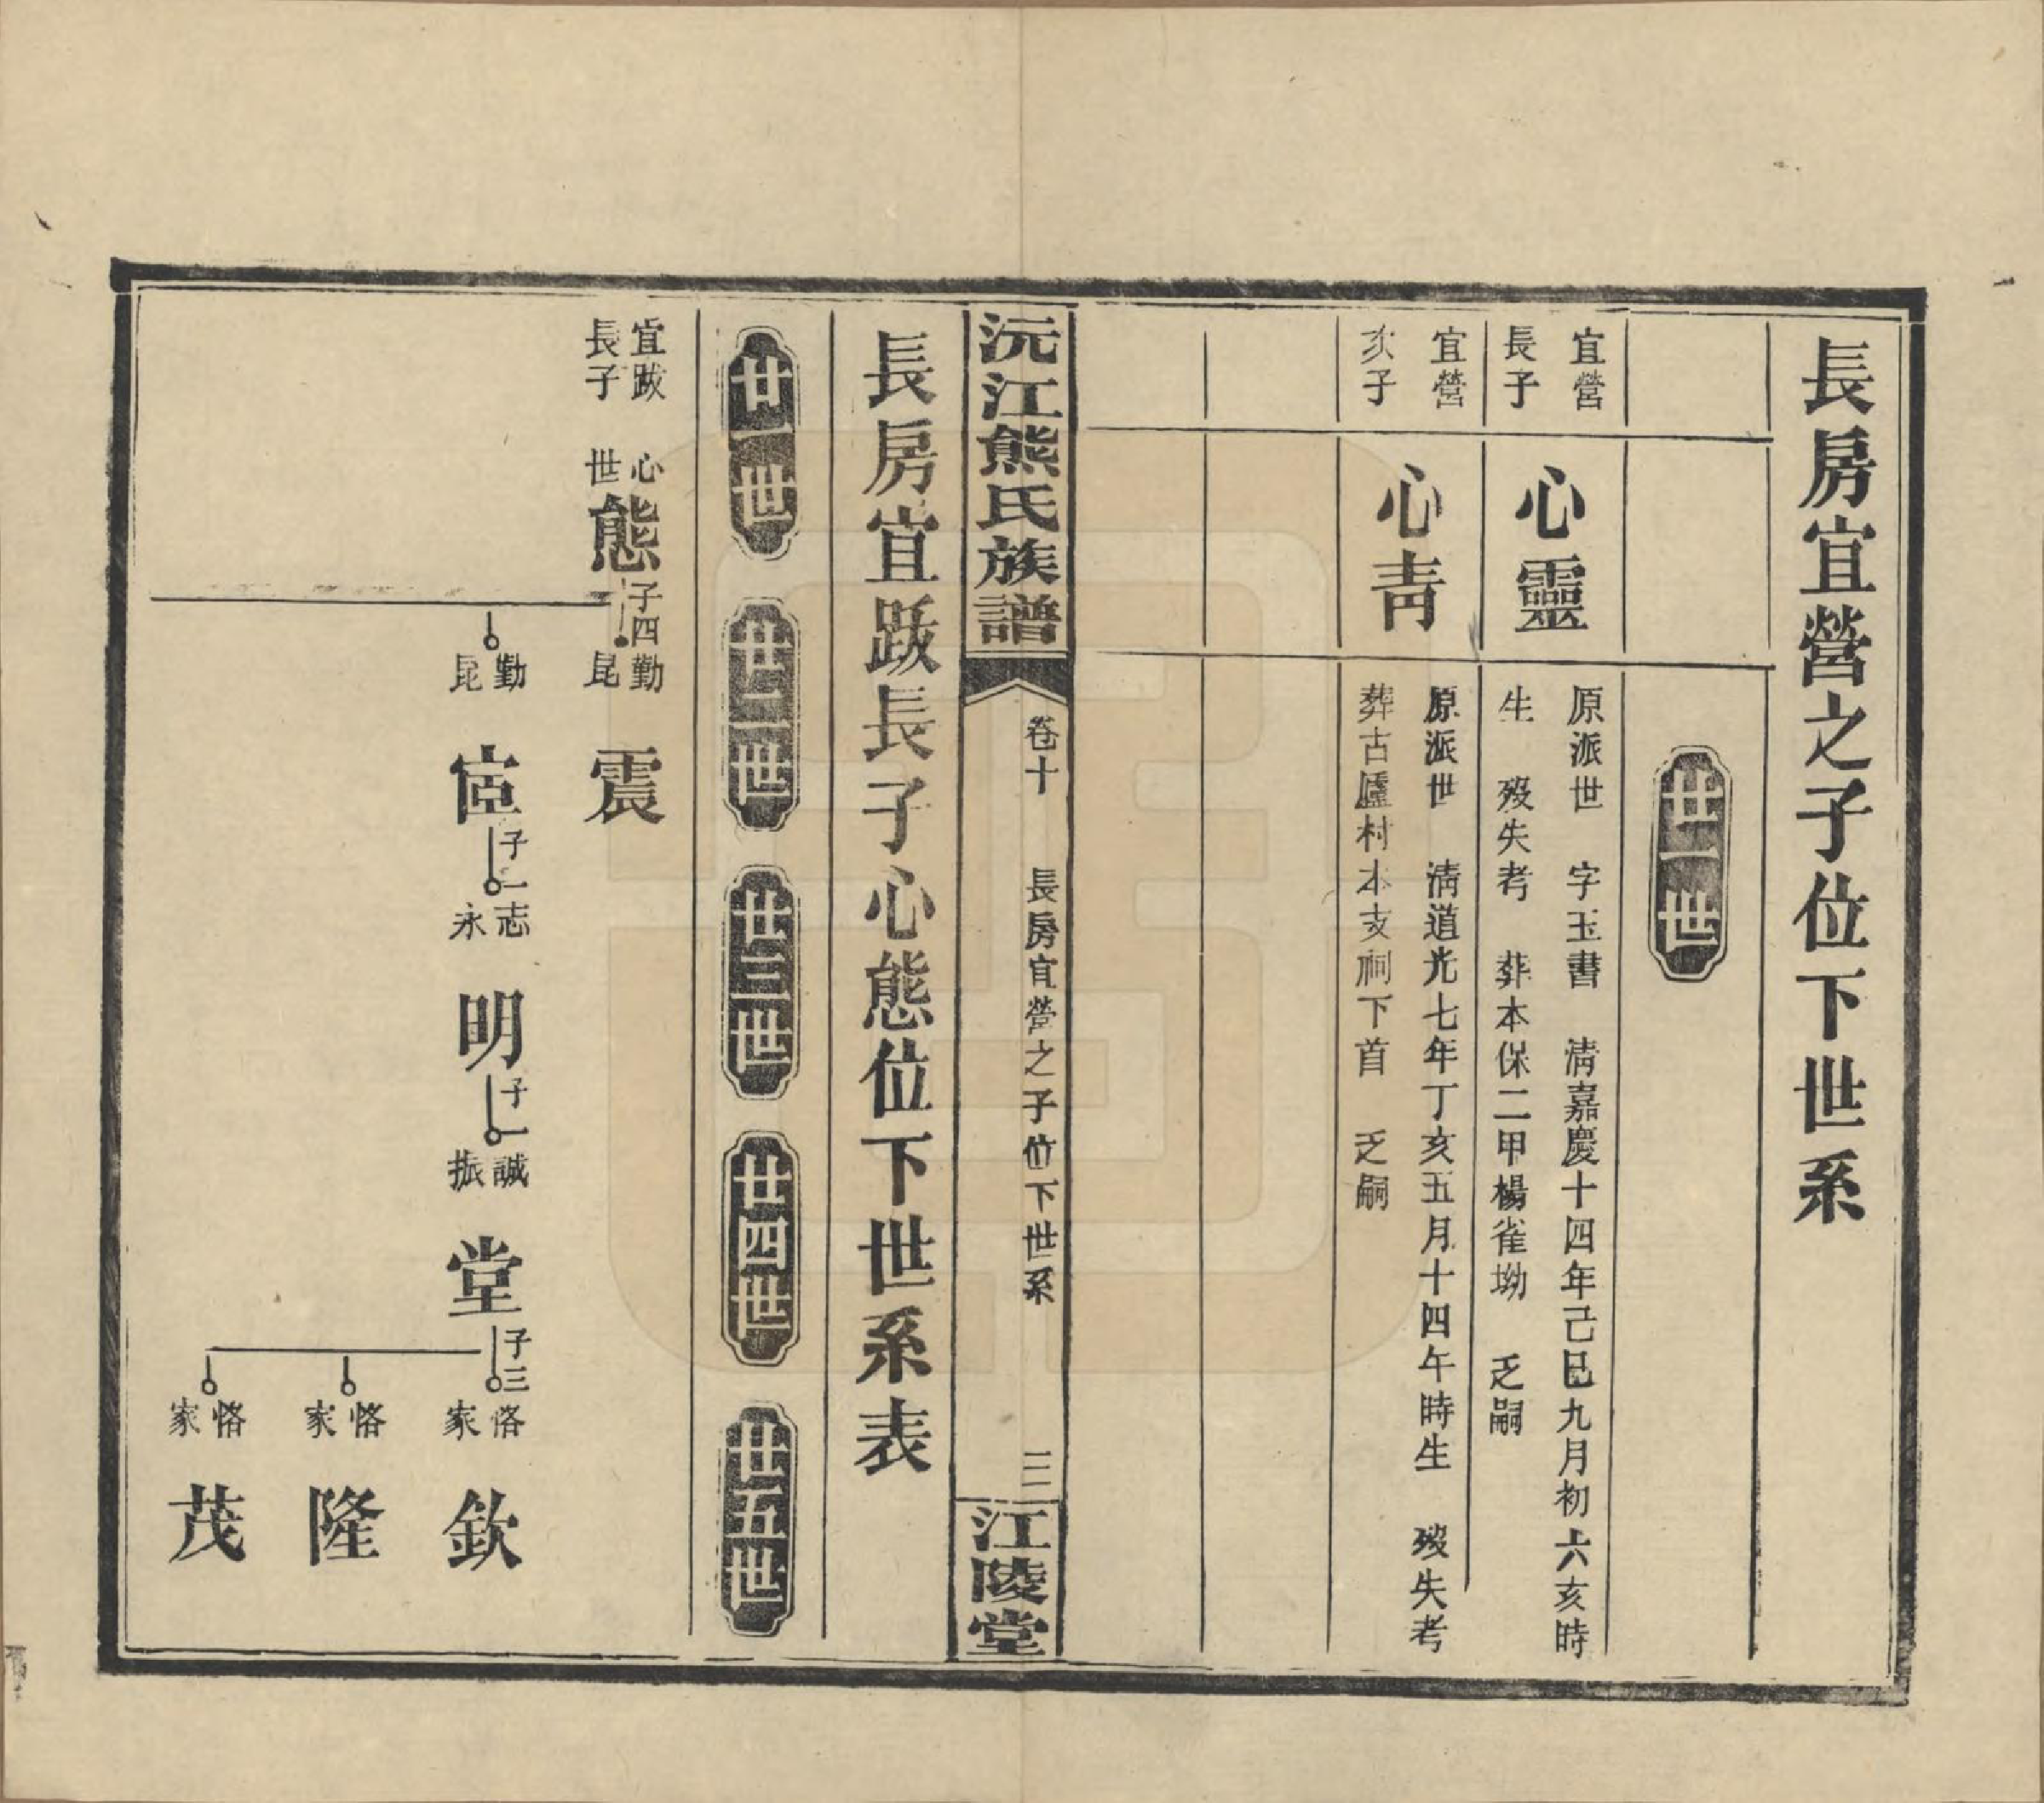 長房宜營之子位下世系
廿一世
宜營
長子
心靈
原派世　字玉書　清嘉慶十四年己巳九月初六亥時
生　歿失考　葬本保二甲楊雀坳　乏嗣
宜營
次子
心靑
原派世　淸道光七年丁亥五月十四午時生　歿失考
葬古廬村本支祠下首　乏嗣
沅江熊氏族譜
卷十　長房宜營之子位下世系　三
江陵堂
長房宜跋長子心態位下世系表
廿一世
廿二世
廿三世
廿四世
廿五世
宜跋
長子
心
世
態
子四
勤
昆
震
勤
昆
宦
子一
志
永
明
子一
誠
振
堂
子三
愘
家
欽
愘
家
隆
愘
家
茂